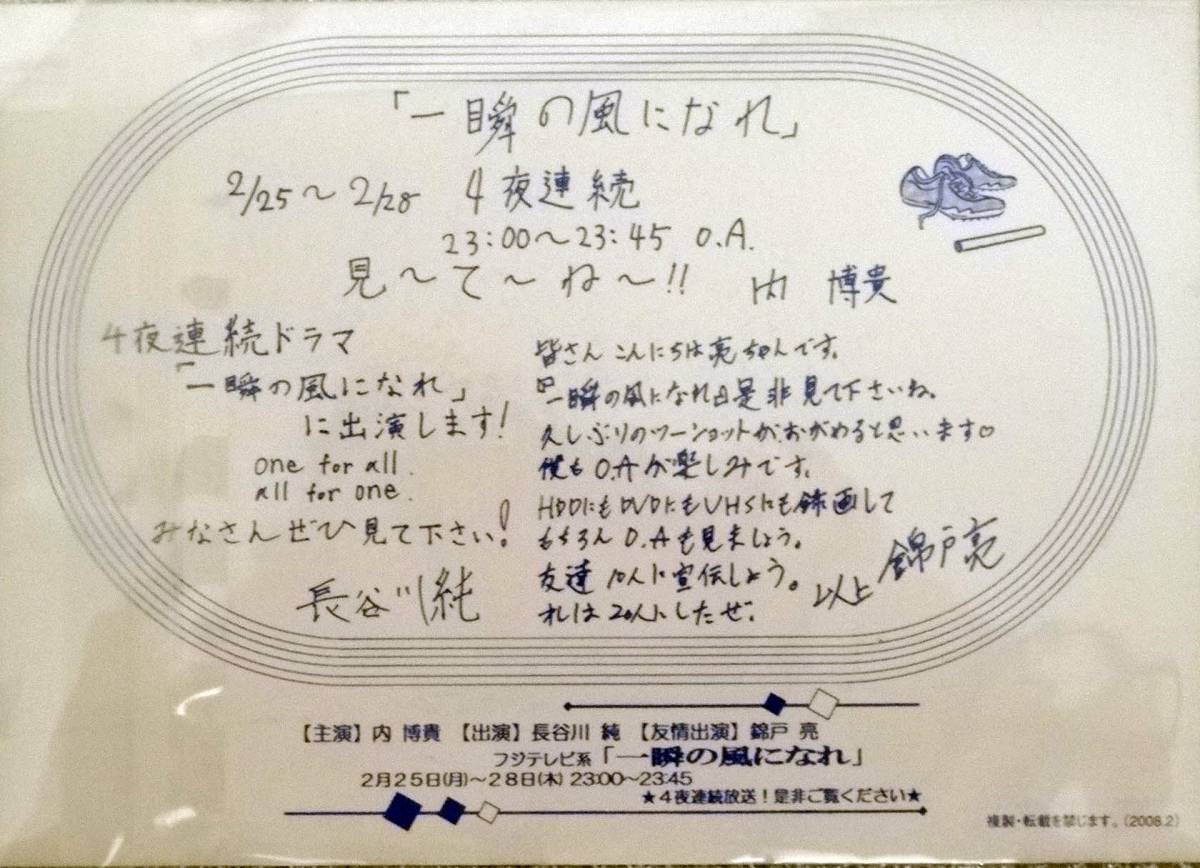 「一瞬の風になれ」
2/25〜2/28 4夜連続
23:00〜23:45 O.A.
見〜て〜ね〜!!
内 博貴
4夜連続ドラマ
「一瞬の風になれ」
に出演します!
one for all.
all for one.
みなさんぜひ見て下さい!
長谷川純
皆さんこんにちは亮ちゃんです。
『一瞬の風になれ』是非見て下さいね。
久しぶりのツーショットがおがめると思います♡
僕もO.Aが楽しみです。
HDDにもDVDにもVHSにも録画して
もちろんO.Aも見ましょう。
友達10人に宣伝しよう。
オレは20人にしたぜ。
以上 錦戸亮
【主演】内 博貴 【出演】長谷川 純 【友情出演】錦戸 亮
フジテレビ系「一瞬の風になれ」
2月25日(月)〜28日(木) 23:00〜23:45
★4夜連続放送!是非ご覧ください★
複製・転載を禁じます。(2008.2)